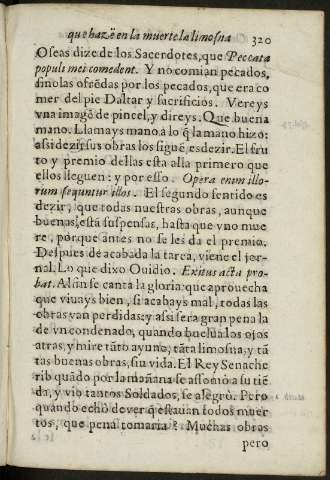 que hazē en la muerte la limosna 320
Oseas dize de los Sacerdotes, que Peccata
populi mei comedent. Y no comian pecados,
sino las ofrēdas por los pecados, que era co
mer del pie Daltar y sacrificios. Vereys
vna imagē de pincel, y direys: Que buena
mano. Llamays mano a lo q̄ la mano hizo:
assi dezir sus obras los siguē es dezir. El fru
to y premio dellas esta alla primero que
ellos lleguen: y por esso. Opera enim illo-
rum sequuntur illos. El segundo sentido es
dezir, que todas nuestras obras, aunque
buenas, está suspensas, hasta que vno mue
re, porque antes no se les da el premio.
Despues de acabada la tarea, viene el jor-
nal. Lo que dixo Ouidio. Exitus acta pro-
bat. Al fin se canta la gloria: que aprouecha
que viuays bien, si acabays mal, todas las
obras van perdidas: y assi sera gran pena la
de vn condenado, quando buelua los ojos
atras, y mire tāto ayuno, tāta limosna, y tā
tas buenas obras, sin vida. El Rey Senache
rib quādo por la mañana se assomò a su tiē
da, y vio tantos Soldados, se alegrò. Pero
quando echò de ver q̄ estauan todos muer
tos, que pena tomaria? Muchas obras
pero